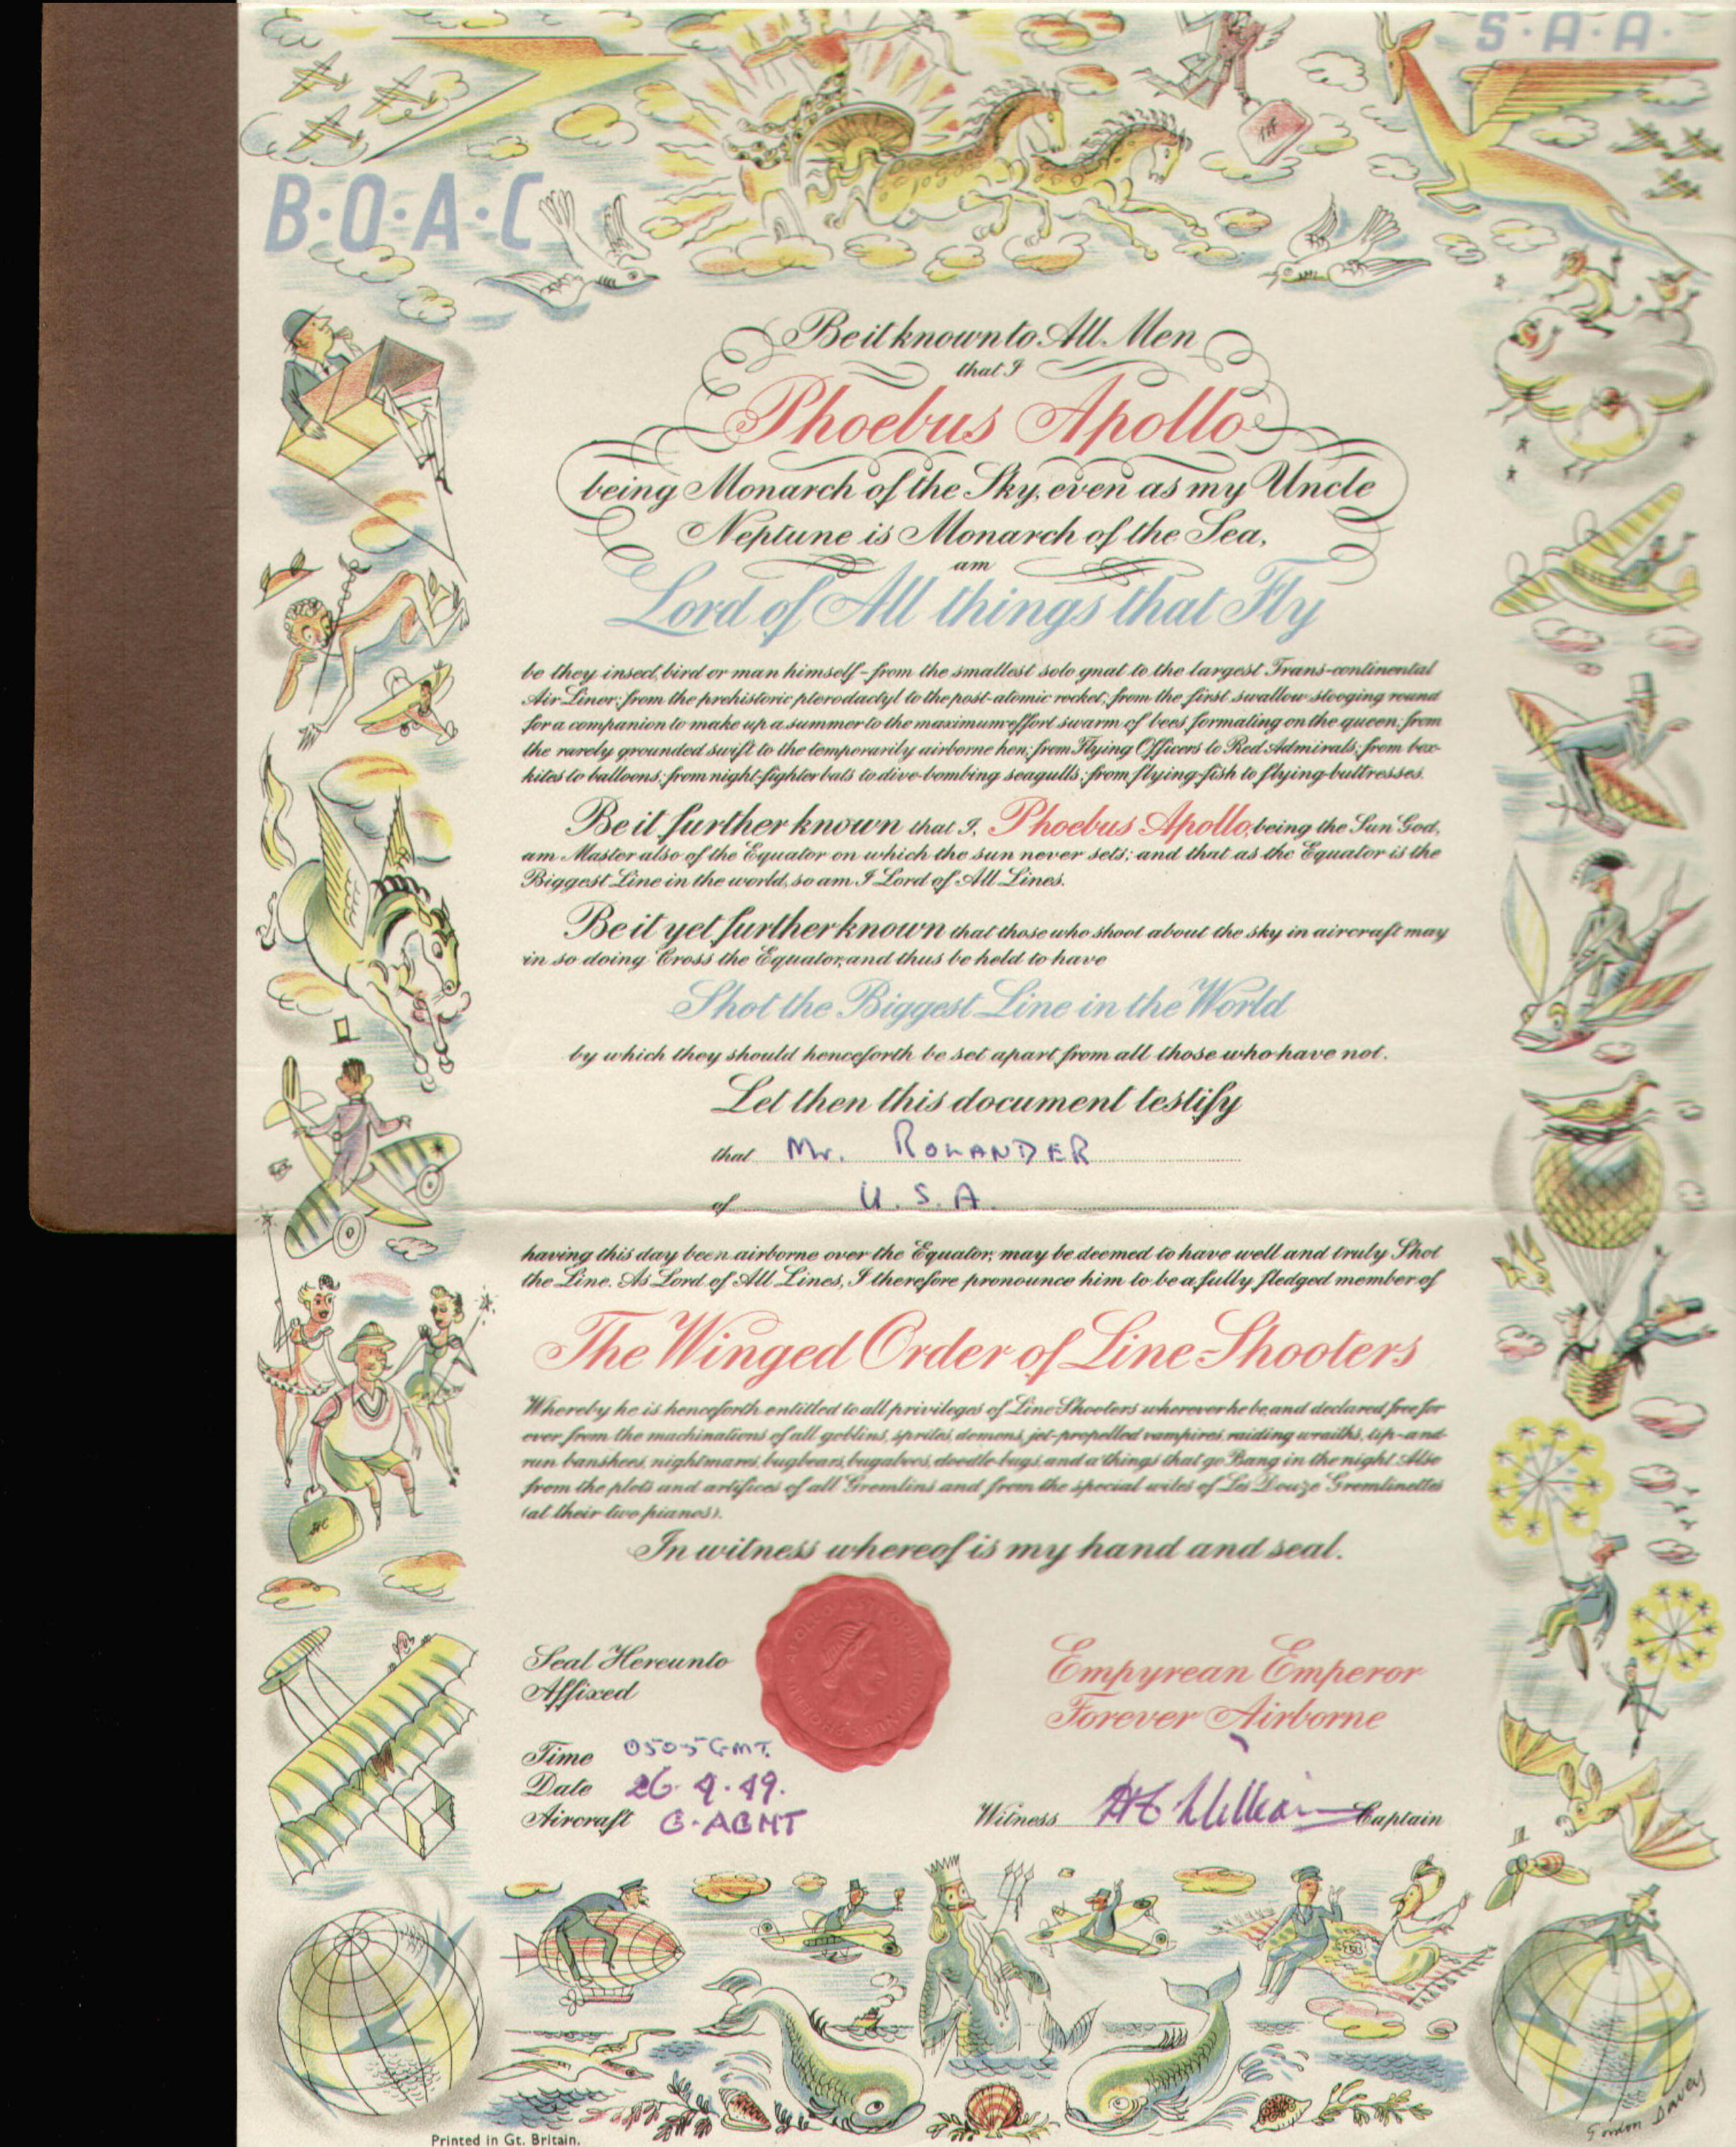 S·A·A·
B·O·A·C
Be it known to All Men
that I
Phoebus Apollo
being Monarch of the Sky, even as my Uncle
Neptune is Monarch of the Sea,
am
Lord of All things that Fly
be they insect, bird or man himself - from the smallest solo gnat to the largest Trans-continental
Air Liner; from the prehistoric pterodactyl to the post-atomic rocket; from the first swallow stooging round
for a companion to make up a summer to the maximum effort swarm of bees formating on the queen; from
the rarely grounded swift to the temporarily airborne hen; from Flying Officers to Red Admirals; from box-
kites to balloons; from night-fighter bats to dive-bombing seagulls; from flying-fish to flying-buttresses.
Be it further known that I, Phoebus Apollo, being the Sun God,
am Master also of the Equator on which the sun never sets; and that as the Equator is the
Biggest Line in the world, so am I Lord of All Lines.
Be it yet further known that those who shoot about the sky in aircraft may
in so doing Cross the Equator, and thus be held to have
Shot the Biggest Line in the World
by which they should henceforth be set apart from all those who have not.
Let then this document testify
that Mr. ROLANDER
of U.S.A.
having this day been airborne over the Equator, may be deemed to have well and truly Shot
the Line. As Lord of All Lines, I therefore pronounce him to be a fully fledged member of
The Winged Order of Line-Shooters
Whereby he is henceforth entitled to all privileges of Line Shooters wherever he be, and declared free for
ever from the machinations of all goblins, sprites, demons, jet-propelled vampires, raiding wraiths, tip-and-
run banshees, nightmares, bugbears, bugaboos, doodle-bugs, and a'things that go Bang in the night. Also
from the plots and artifices of all Gremlins and from the special wiles of Les Douze Gremlinettes
(at their two pianos).
In witness whereof is my hand and seal.
Seal Hereunto
Affixed
Empyrean Emperor
Forever Airborne
Time 0505 GMT.
Date 26.4.49.
Aircraft G-AGMT
Witness Captain
Gordon Davey
Printed in Gt. Britain.